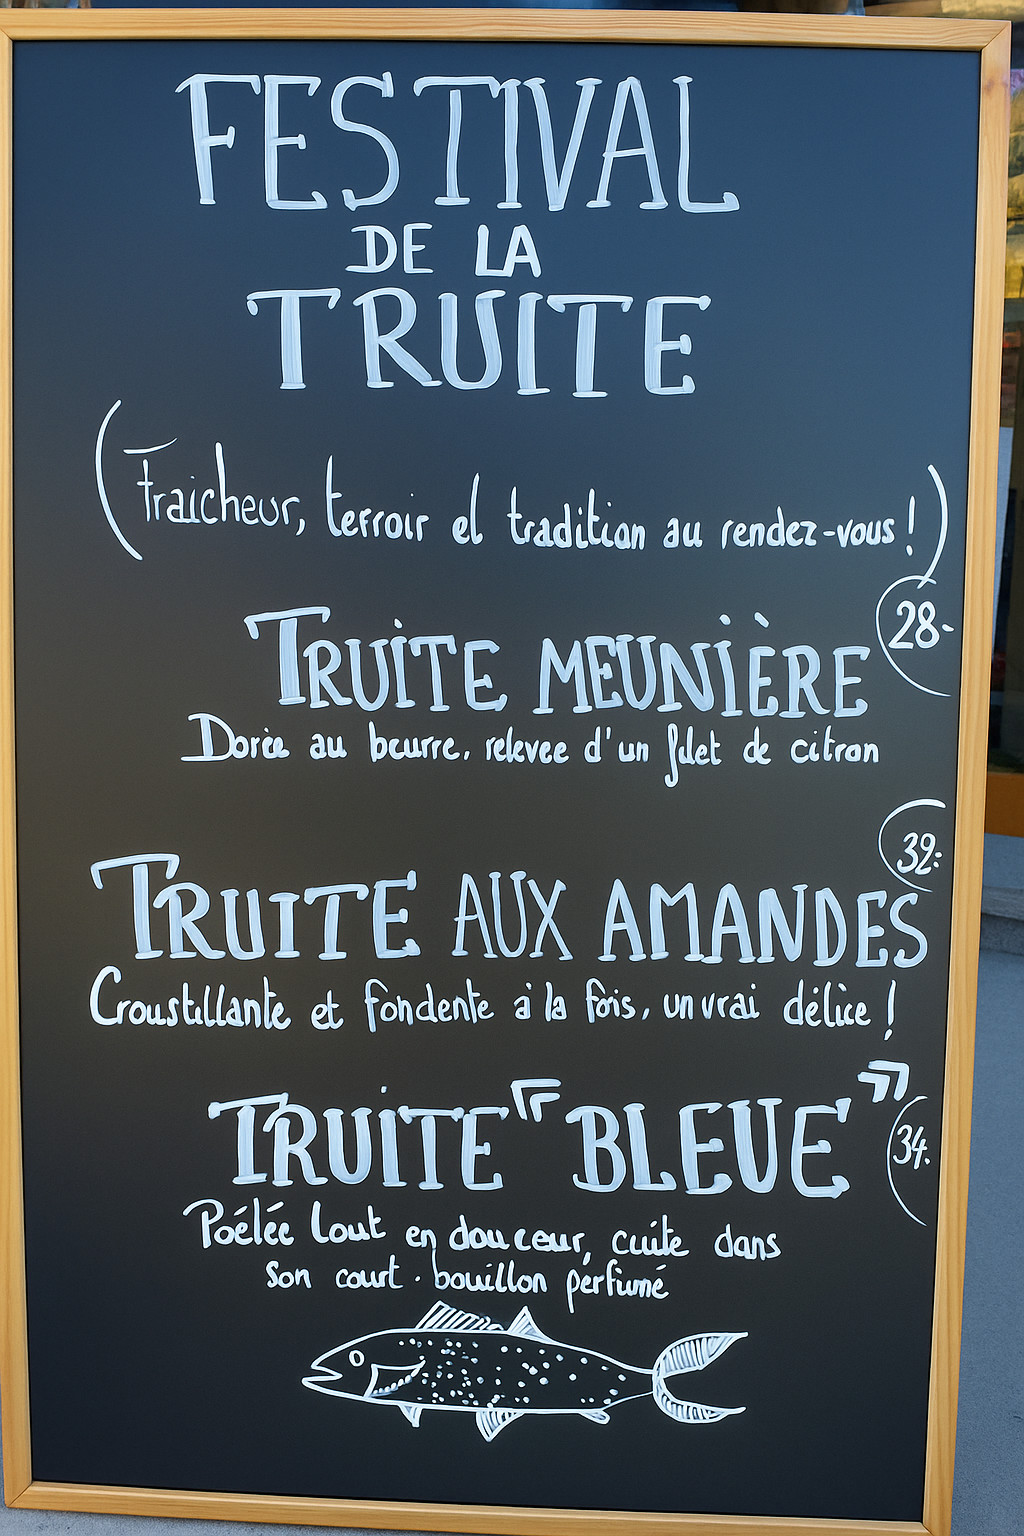 FESTIVAL
DE LA
TRUITE
(Fraicheur, terroir et tradition au rendez-vous!)
28.-
TRUITE MEUNIÈRE
Dorée au beurre, relevee d'un filet de citron
32.-
TRUITE AUX AMANDES
Croustillante et fondente à la fois, un vrai délice!
TRUITE "BLEUE"
34.
Poélée tout en douceur, cuite dans
son court-bouillon perfumé